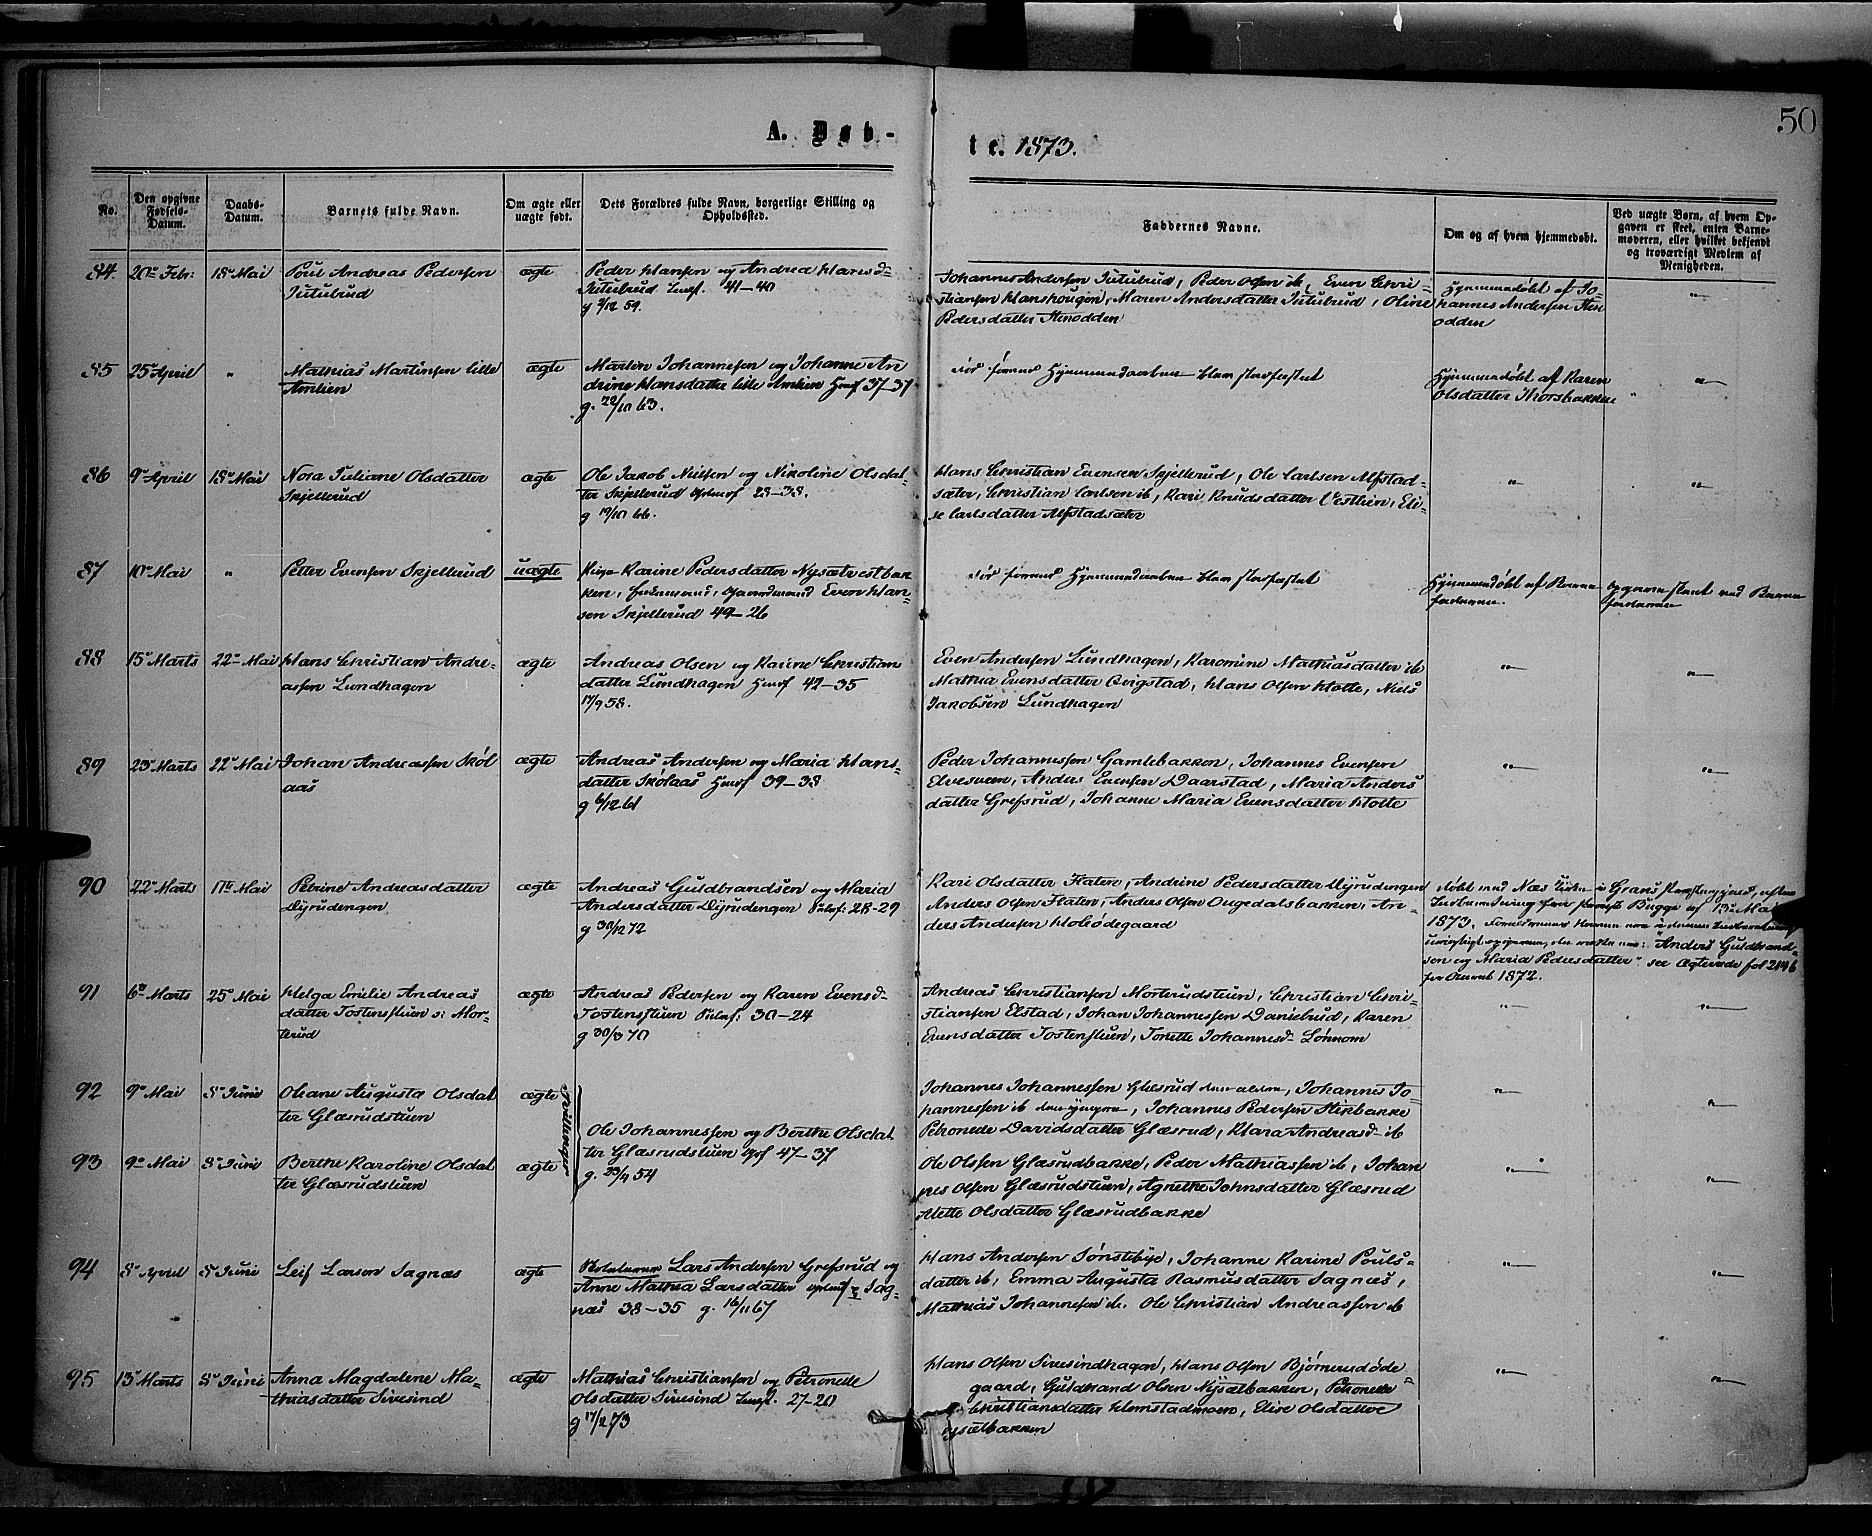 50
A. Døb-
te. 1873.
No.
Den opgivne
Fødsels-
Datum.
Daabs-
Datum.
Barnets fulde Navn.
Om ægte eller
uægte født.
Dets Forældres fulde Navn, borgerlige Stilling og
Opholdssted.
Faddernes Navne.
Om og af hvem hjemmedøbt.
Ved uægte Børn, af hvem Op-
gaven er skeet, enten Barne-
moderen, eller hvilket bekjendt
og troværdigt Medlem af
Menigheden.
84.
20de Febr:
18de Mai
Poul Andreas Pedersen
Jutulrud
ægte
Peder Hansen og Andrea Hansd-
Jutulrud 41-40
g 2/12 59.
Johannes Andersen Jutulrud, Peder Olsen ib, Even Chri-
stiansen Hanshougen, Maren Andersdatter Jutulrud, Oline
Pedersdatter Stenodden
Hjemmedøbt af Jo-
hannes Andersen Sten
odden
"
85
25de April
"
Mathias Martinsen lille
Amlien
ægte
Martin Johannesen og Johanne An
drine Hansdatter lille Amlien Huusf 37-37
g. 22/10 63.
død førend Hjemmedaaben blev stadfæstet
Hjemmedøbt af Karen
Olsdatter Thorsbakken
"
86
9de April
18de Mai
Nora Juliane Olsdatter
Skjellerud
ægte
Ole Jakob Nielsen og Nikoline Olsdat-
ter Skjellerud 28-38.
g 19/10 66.
Hans Christian Evensen Skjellerud, Ole Carlsen Alfstad-
sæter, Christian Carlsen ib, Kari Knudsdatter Vestlien, Eli-
se Carlsdatter Alfstadsæter
"
"
87
10de Mai
"
Petter Evensen Skjellerud
uægte
Pige Karine Pedersdatter Nysætvestbak
ken, Gaardmand Even Han-
sen Skjellerud 49-26
død førend Hjemmedaaben blev stadfæstet
Hjemmedøbt af Barne
faderen.
opgivne skeet ved Barne
faderen
88
15de Marts
22de Mai
Hans Christian Andre-
assen Lundhagen
ægte
Andreas Olsen og Karine Christians
datter Lundhagen Huusf 42-35
17/9 58.
Even Andersen Lundhagen, Karomine Mathiasdatter ib
Mathea Evensdatter Qvigstad, Hans Olsen Holte, Niels
Jakobsen Lundhagen
"
"
89
23de Marts
22de Mai
Johan Andreassen Skøl
aas
ægte
Andreas Andersen og Maria Hans-
datter Skølaas Huusf 39-38
g 6/12 61
Peder Johannessen Gamlebakken, Johannes Evensen
Elvesveen, Anders Evensen Daarstad, Maria Anders
datter Grefsrud, Johanne Maria Evensdatter Holte
"
"
90
22de Marts
17de Mai
Petrine Andreasdatter
Dyrudengen
ægte
Andreas Guldbrandsen og Maria
Andersdatter Dyrudengen 28-29
g 30/12 72
Kari Olsdatter Flaten, Andrine Pedersdatter Dyrudengen
Anders Olsen Flaten, Anders Olsen Ougedalsbakken, An-
ders Andersen Holsødegaard
døbt ved Næs Kirke i Grans Præstegjeld, efter
Indberetning fra Bugge af 13de Mai
1873. Forældrenes Navne var i denne Indberetning
urigtigt opgivne, de være: "Anders Guldbrand-
sen og Maria Pedersdatter" see Ægteviede fol 214b
for Aaret 1872.
91
6te Marts
25de Mai
Helga Emilie Andreas
datter Tostenstuen s: Mor-
terud
ægte
Andreas Pedersen og Karen Evensd-
Tostenstuen 30-24
g 30/3 70
Andreas Christiansen Morterudstuen, Christian Chri-
stiansen Elstad, Johan Johannessen Danielrud, Karen
Evensdatter Tostenstuen, Tonette Johannesd- Lønnom
"
"
92
9de Mai
8de Juni
Oleane Augusta Olsdat
ter Glæsrudstuen
ægte
Tvillinger
Ole Johannessen og Berthe Olsdat
ter Glæsrudstuen 47-37
g. 23/4 54
Johannes Johannessen Glæsrud den ældre, Johannes Jo-
hannessen ib den yngre, Johannes Pedersen Stikbakke
Petronelle Davidsdatter Glæsrud, Klara Andreasd- ib
"
"
93
9de Mai
8de Juni
Berthe Karoline Olsdat
ter Glæsrudstuen
ægte
Ole Olsen Glæsrudbakke, Peder Mathiassen ib, Johan
nes Olsen Glæsrudstuen, Agnethe Johnsdatter Glæsrud
Alette Olsdatter Glæsrudbakke
"
"
94
8de April
8de Juni
Leif Larsen Sagnæs
ægte
Lars Andersen Grefsrud og
Anne Mathea Larsdatter Sag-
næs 38-35 g. 16/11 67
Hans Andersen Sønsteby, Johanne Karine Pouls-
datter ib, Emma Augusta Rasmusdatter Sagnæs,
Mathias Johannesen ib. Ole Christian Andreassen ib
"
"
95
13de Marts
8de Juni
Anna Magdalene Ma-
thiasdatter Sivesind
ægte
Mathias Christiansen og Petronelle
Olsdatter Sivesind 27-20
g 17/2 73
Hans Olsen Sivesindhagen, Hans Olsen Bjørnerudøde
gaard, Guldbrand Olsen Nysætbakken, Petronelle
Christiansdatter Hemstadmoen, Elise Olsdatter
Nysætbakken
"
"